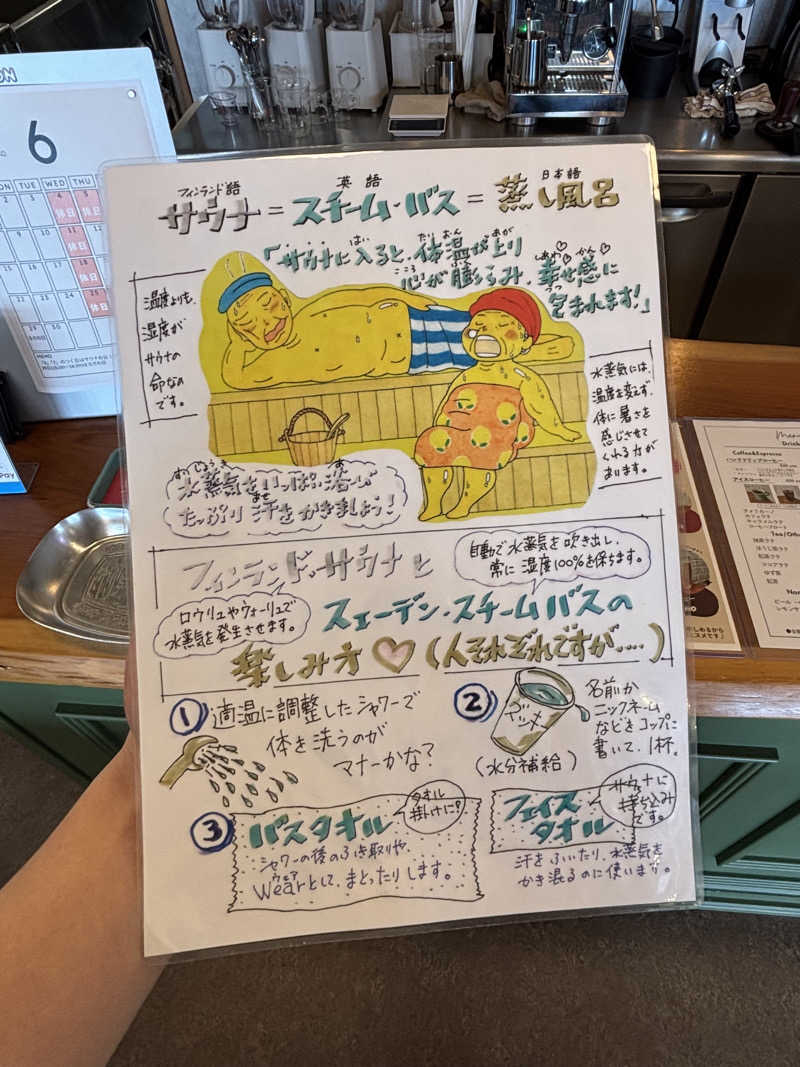 フィンランド語 英語 日本語
サウナ=スチーム・バス=蒸し風呂
「サウナに入ると、体温が上り
心が膨らみ、幸せ感に
包まれます!」
温度よりも、
湿度が
サウナの
命なの
です。
水蒸気には、
温度を変えず、
体に暑さを
感じさせて
くれる力が
あります。
水蒸気をいっぱい浴び
たっぷり汗をかきましょう!
フィンランド・サウナと
自動で水蒸気を吹き出し、
常に湿度100%を保ちます。
ロウリュやウォーリュで
水蒸気を発生させます。
スェーデン・スチームバスの
楽しみ方♡(人それぞれですが....)
① 適温に調整したシャワーで
体を洗うのが
マナーかな?
②
名前か
ニックネーム
などをコップに
書いて、1杯。
(水分補給)
③ バスタオル
タオル
掛けに?
シャワーの後のふき取りや、
Wearとして、まとったりします。
ウェア
フェイス
タオル
サウナに
持ち込み
です。
汗をふいたり、水蒸気を
かき混るのに使います。
6
MON TUE WED THU
休日
Coffee&Espresso